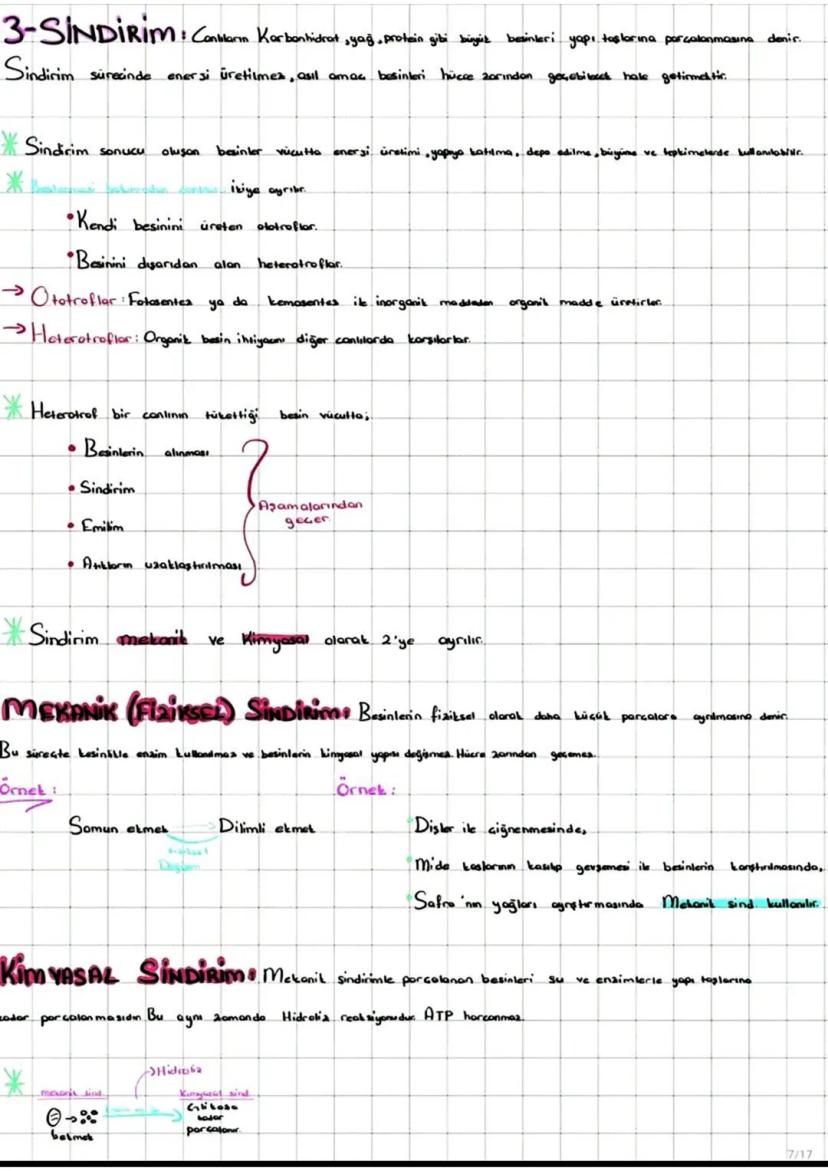 3-SİNDİRİM: Canlıların Karbonhidrat, yağ, protein gibi büyük besinleri yapı taşlarına parçalanmasına denir.
Sindirim sürecinde enerji üretilmez, asıl amaç besinleri hücre zarından geçebilecek hale getirmektir.
* Sindirim sonucu oluşan besinler vücutta enerji üretimi, yapıya katılma, depo edilme, büyüme ve tepkimelerde kullanılabilir.
* Beslenmesi bakımından canlılar ikiye ayrılır.
• Kendi besinini üreten ototroflar.
• Besinini dışarıdan alan heterotroflar.
→ Ototroflar: Fotosentez ya da kemosentez ile inorganik maddeden organik madde üretirler.
→ Heterotroflar: Organik besin ihtiyacını diğer canlılarda karşılarlar.
* Heterotrof bir canlının tükettiği besin vücutta;
• Besinlerin alınması
• Sindirim
• Emilim
• Atıkların uzaklaştırılması
Aşamalarından
geçer
* Sindirim mekanik ve Kimyasal olarak 2'ye ayrılır.
MEKANİK (FİZİKSEL) SİNDİRİM: Besinlerin fiziksel olarak daha küçük parçalara ayrılmasına denir.
Bu süreçte kesinlikle enzim kullanılmaz ve besinlerin kimyasal yapısı değişmez. Hücre zarından geçemez.
Örnek: Örnek:
Somun ekmek → Dilimli ekmek
Fiziksel
Değişim
• Dişler ile çiğnenmesinde,
• Mide kaslarının kasılıp gevşemesi ile besinlerin karıştırılmasında,
• Safra'nın yağları ayrıştırmasında Mekanik sind. kullanılır.
KİMYASAL SİNDİRİM: Mekanik sindirimle parçalanan besinleri su ve enzimlerle yapı taşlarına
kadar parçalanmasıdır. Bu aynı zamanda Hidroliz reaksiyonudur. ATP harcanmaz.
* → Hidroliz
mekanik sind. Kimyasal sind.
Glikoza
kadar
parçalanır.
7/17